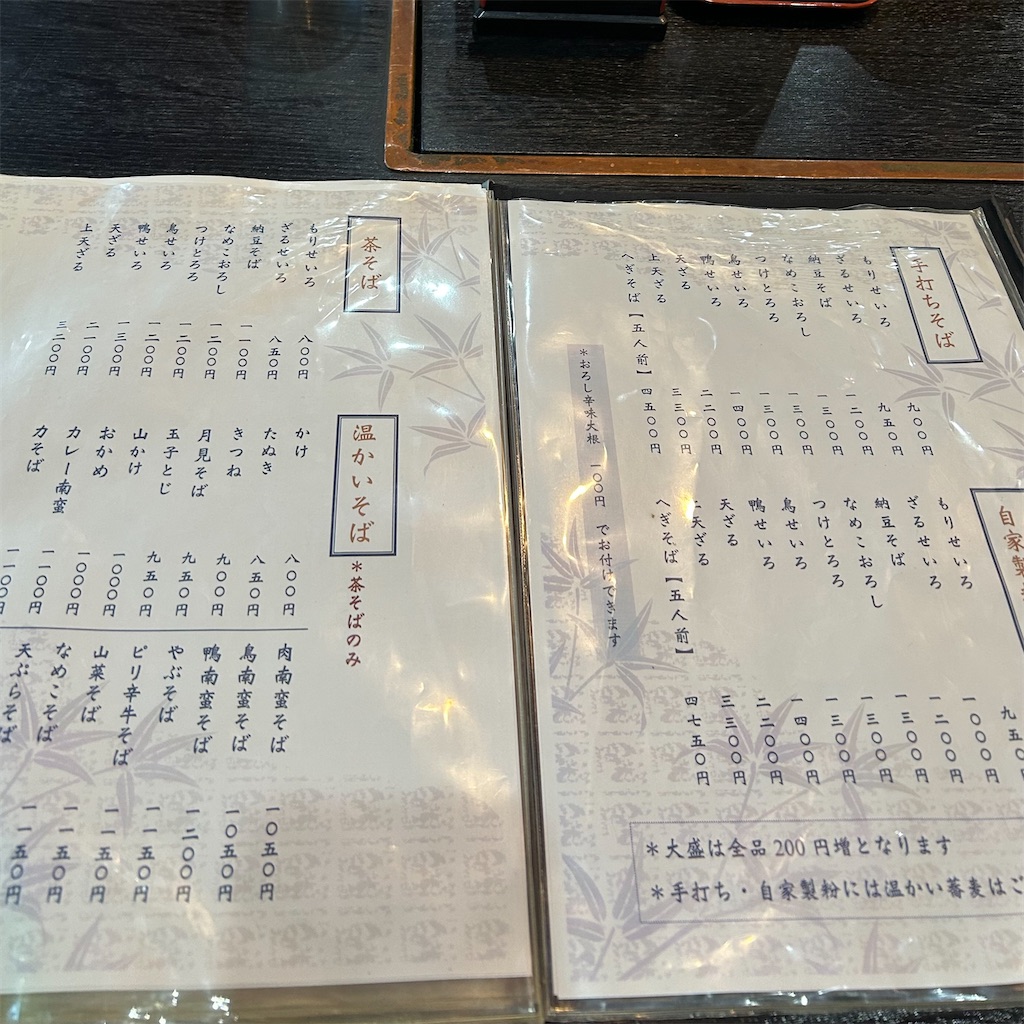 手打ちそば
もりせいろ 九〇〇円
ざるせいろ 九五〇円
納豆そば 一二〇〇円
なめこおろし 一三〇〇円
つけとろろ 一三〇〇円
鳥せいろ 一三〇〇円
鴨せいろ 一四〇〇円
天ざる 二二〇〇円
上天ざる 三三〇〇円
へぎそば【五人前】 四五〇〇円
自家製
もりせいろ 九五〇
ざるせいろ 一〇〇〇円
納豆そば 一二〇〇円
なめこおろし 一三〇〇円
つけとろろ 一三〇〇円
鳥せいろ 一三〇〇円
鴨せいろ 一四〇〇円
天ざる 二二〇〇円
上天ざる 三三〇〇円
へぎそば【五人前】 四七五〇円
*おろし辛味大根 一〇〇円 でお付けできます
*大盛は全品200円増となります
*手打ち・自家製粉には温かい蕎麦はご
茶そば
もりせいろ 八〇〇円
ざるせいろ 八五〇円
納豆そば 一一〇〇円
なめこおろし 一二〇〇円
つけとろろ 一二〇〇円
鳥せいろ 一二〇〇円
鴨せいろ 一三〇〇円
天ざる 二一〇〇円
上天ざる 三二〇〇円
温かいそば *茶そばのみ
かけ 八〇〇円
たぬき 八五〇円
きつね 九〇〇円
月見そば 九五〇円
玉子とじ 九五〇円
山かけ 一〇〇〇円
おかめ 一〇〇〇円
カレー南蛮 一一〇〇円
力そば 一一〇〇円
肉南蛮そば 一〇五〇円
鳥南蛮そば 一〇五〇円
鴨南蛮そば 一二〇〇円
やぶそば 一一五〇円
ピリ辛牛そば 一一五〇円
山菜そば 一一五〇円
なめこそば 一一五〇円
天ぷらそば